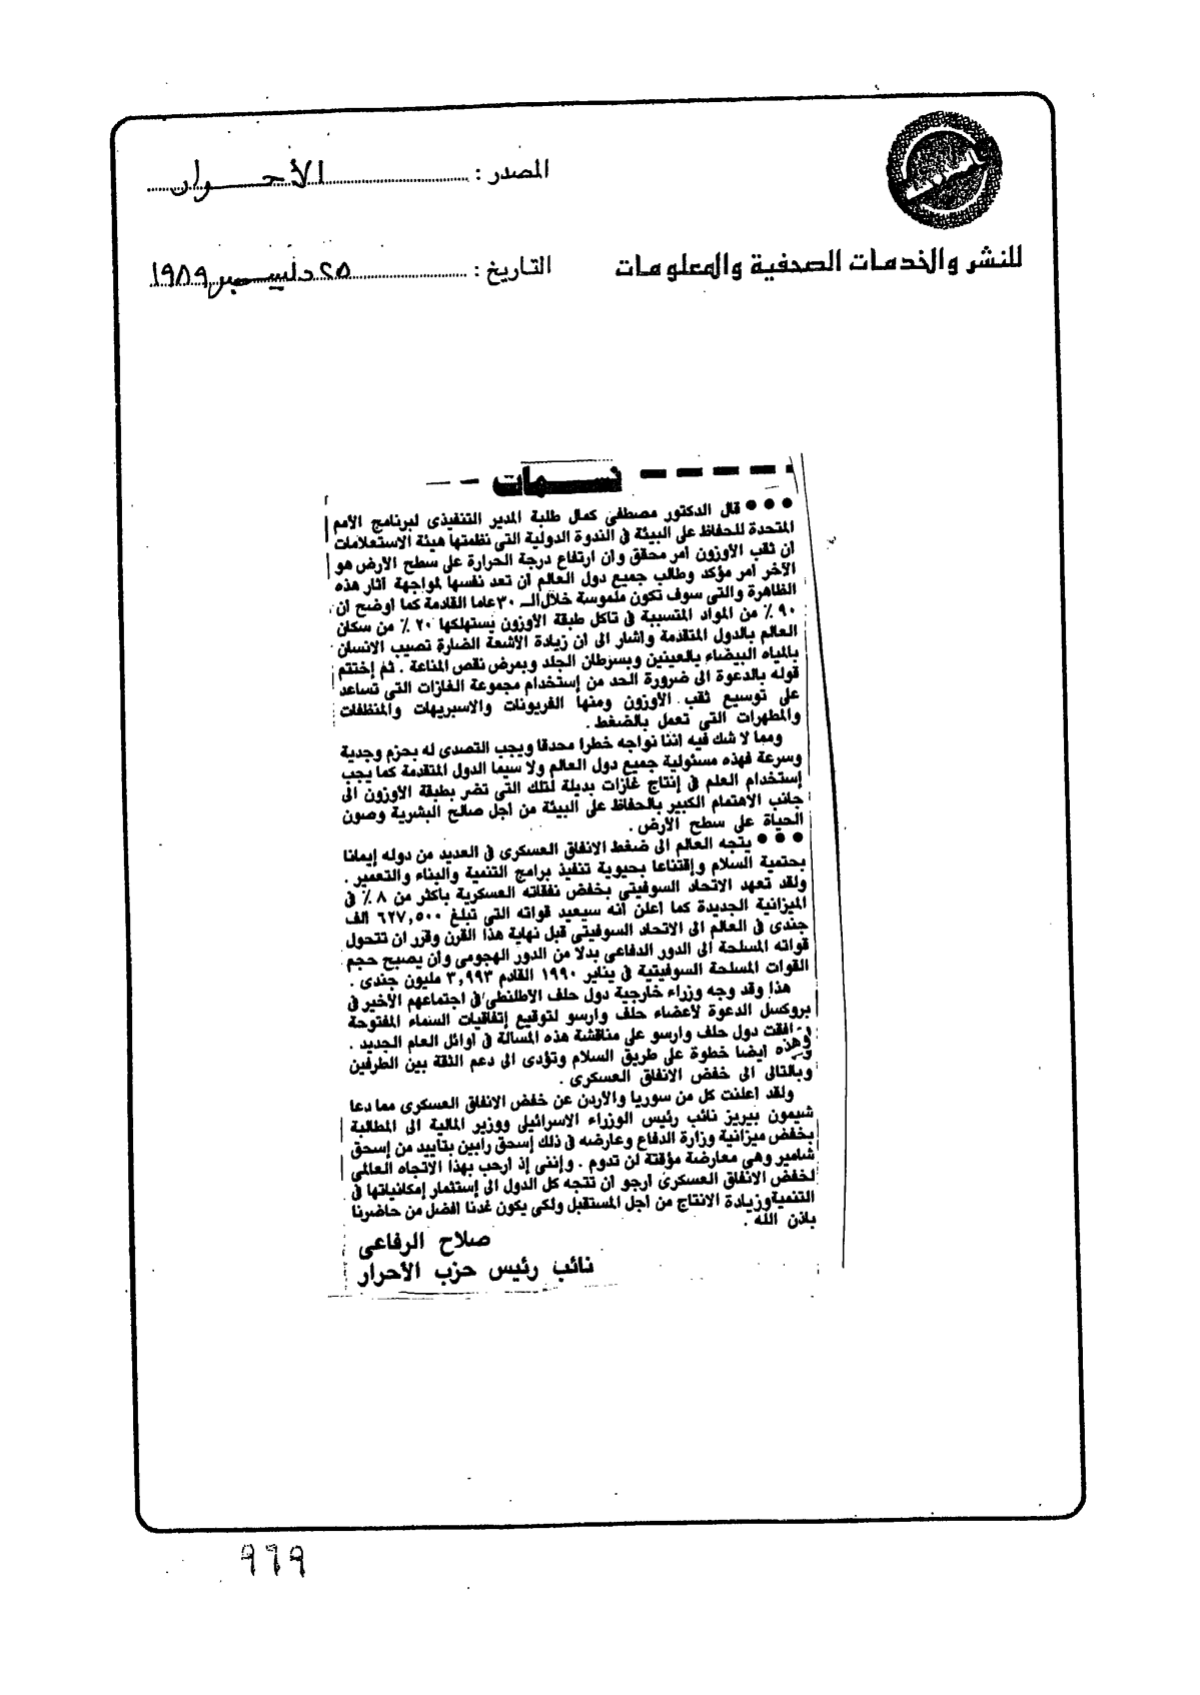 المصدر : الأحرار
للنشر والخدمات الصحفية والمعلومات
التاريخ : ٢٥ ديسمبر ١٩٨٩
نسمات
● ● ● قال الدكتور مصطفى كمال طلبة المدير التنفيذى لبرنامج الأمم
المتحدة للحفاظ على البيئة فى الندوة الدولية التى نظمتها هيئة الاستعلامات
أن ثقب الأوزون أمر محقق وأن ارتفاع درجة الحرارة على سطح الأرض هو
الآخر أمر مؤكد وطالب جميع دول العالم أن تعد نفسها لمواجهة آثار هذه
الظاهرة والتى سوف تكون ملموسة خلال الـ ٣٠ عاما القادمة كما أوضح أن
٩٠ ٪ من المواد المتسببة فى تآكل طبقة الأوزون يستهلكها ٢٠ ٪ من سكان
العالم بالدول المتقدمة وأشار الى أن زيادة الأشعة الضارة تصيب الانسان
بالمياه البيضاء بالعينين وبسرطان الجلد وبمرض نقص المناعة . ثم إختتم
قوله بالدعوة الى ضرورة الحد من إستخدام مجموعة الغازات التى تساعد
على توسيع ثقب الأوزون ومنها الفريونات والاسبريهات والمنظفات
والمطهرات التى تعمل بالضغط .
ومما لا شك فيه أننا نواجه خطرا محدقا ويجب التصدى له بحزم وجدية
وسرعة فهذه مسئولية جميع دول العالم ولا سيما الدول المتقدمة كما يجب
إستخدام العلم فى إنتاج غازات بديلة لتلك التى تضر بطبقة الأوزون الى
جانب الاهتمام الكبير بالحفاظ على البيئة من أجل صالح البشرية وصون
الحياة على سطح الأرض .
● ● ● يتجه العالم الى ضغط الانفاق العسكرى فى العديد من دوله إيمانا
بحتمية السلام وإقتناعا بحيوية تنفيذ برامج التنمية والبناء والتعمير .
ولقد تعهد الاتحاد السوفيتى بخفض نفقاته العسكرية بأكثر من ٨ ٪ فى
الميزانية الجديدة كما أعلن أنه سيعيد قواته التى تبلغ ٦٢٧,٥٠٠ ألف
جندى فى العالم الى الاتحاد السوفيتى قبل نهاية هذا القرن وقرر أن تتحول
قواته المسلحة الى الدور الدفاعى بدلا من الدور الهجومى وأن يصبح حجم
القوات المسلحة السوفيتية فى يناير ١٩٩٠ القادم ٣,٩٩٣ مليون جندى .
هذا وقد وجه وزراء خارجية دول حلف الاطلنطى فى اجتماعهم الأخير فى
بروكسل الدعوة لأعضاء حلف وارسو لتوقيع إتفاقيات السماء المفتوحة
ووافقت دول حلف وارسو على مناقشة هذه المسألة فى أوائل العام الجديد .
وهذه أيضا خطوة على طريق السلام وتؤدى الى دعم الثقة بين الطرفين
وبالتالى الى خفض الانفاق العسكرى .
ولقد أعلنت كل من سوريا والأردن عن خفض الانفاق العسكرى مما دعا
شيمون بيريز نائب رئيس الوزراء الاسرائيلى ووزير المالية الى المطالبة
بخفض ميزانية وزارة الدفاع وعارضه فى ذلك إسحق رابين بتأييد من إسحق
شامير وهى معارضة مؤقتة لن تدوم . وإننى إذ أرحب بهذا الاتجاه العالمى
لخفض الانفاق العسكرى أرجو أن تتجه كل الدول الى إستثمار إمكانياتها فى
التنمية وزيادة الانتاج من أجل المستقبل ولكى يكون غدنا أفضل من حاضرنا
باذن الله .
صلاح الرفاعى
نائب رئيس حزب الأحرار
٩٦٩